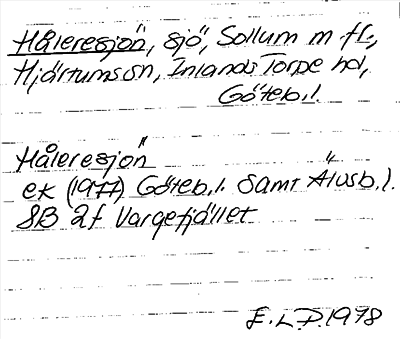 Håleresjön, sjö, Sollum m fl,
Hjärtums sn, Inlands Torpe hd,
Göteb. l.
Håleresjön
ek (1977) Göteb. l. samt Älvsb. l.
8B 2f Vargefjället
E. L. P. 1978